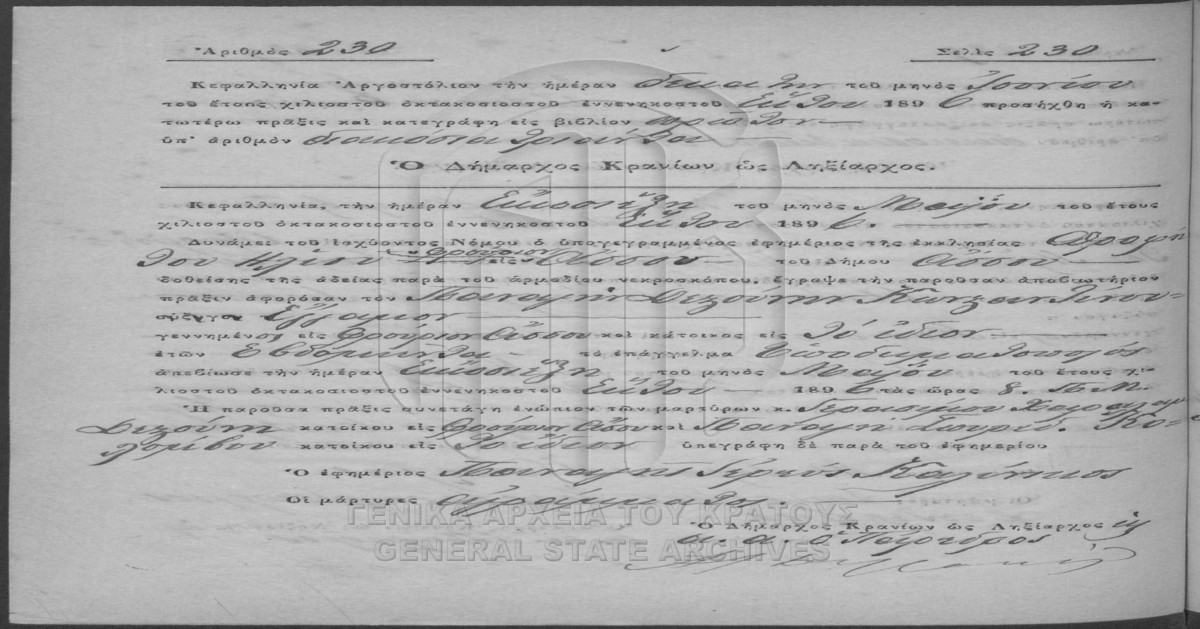 Ἀριθμὸς 230 Σελὶς 230
Κεφαλληνία Ἀργοστόλιον τὴν ἡμέραν δεκάτην τοῦ μηνὸς Ἰουνίου
τοῦ ἔτους χιλιοστοῦ ὀκτακοσιοστοῦ ἐννενηκοστοῦ Ἕκτου 1896 προσήχθη ἡ κα-
τωτέρω πρᾶξις καὶ κατεγράφη εἰς βιβλίον πρῶτον
ὑπ' ἀριθμὸν διακόσια τριάντα
Ὁ Δήμαρχος Κρανίων ὡς Ληξίαρχος.
Κεφαλληνία, τὴν ἡμέραν Εἰκοστέξη τοῦ μηνὸς Μαΐου τοῦ ἔτους
χιλιοστοῦ ὀκτακοσιοστοῦ ἐννενηκοστοῦ Ἕκτου 1896.
Δυνάμει τοῦ ἰσχύοντος Νόμου ὁ ὑπογεγραμμένος ἐφημέριος τῆς ἐκκλησίας Προφή
του Ηλιου Φρούριον εἰς Άσσου τοῦ Δήμου Άσσου
δοθείσης τῆς ἀδείας παρὰ τοῦ ἁρμοδίου νεκροσκόπου, ἔγραψε τὴν παροῦσαν ἀποβιωτήριον
πρᾶξιν ἀφορῶσαν τὸν Παναγὴν
σύζυγον Ἔγγαμον
γεννημένον εἰς Φρούριον Άσσου καὶ κάτοικος εἰς τὸ ἴδιον
ἐτῶν Εβδομήντα τὸ ἐπάγγελμα Ὑποδηματοποιός
ἀπεβίωσε τὴν ἡμέραν Εἰκοστέξη τοῦ μηνὸς Μαΐου τοῦ ἔτους χι-
λιοστοῦ ὀκτακοσιοστοῦ ἐννενηκοστοῦ Ἕκτου 1896 τὰς ὥρας 8. Π.Μ.
Ἡ παροῦσα πρᾶξις συνετάγη ἐνώπιον τῶν μαρτύρων κ. Γερασίμου
κατοίκου εἰς Φρούριον Άσσου καὶ Παναγή Σπυρίδ.
κατοίκου εἰς Τὸ ἴδιον ὑπεγράφη δὲ παρὰ τοῦ ἐφημερίου
Ὁ ἐφημέριος Παναγης Ιερεύς Καλύπικος
Οἱ μάρτυρες ἀγράμματοι.
ΓΕΝΙΚΑ ΑΡΧΕΙΑ ΤΟΥ ΚΡΑΤΟΥΣ
Ὁ Δήμαρχος Κρανίων ὡς Ληξίαρχος
GENERAL STATE ARCHIVES
α. α. ὁ Πάρεδρος